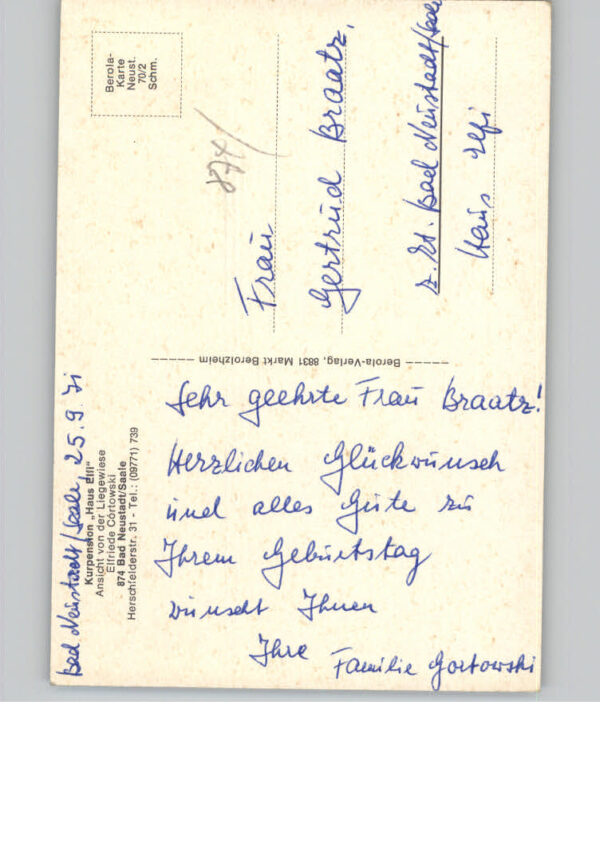 Bad Neustadt/Saale, 25.9.71
Kurpension „Haus Elfi"
Ansicht von der Liegewiese
Elfriede Cörtowski
874 Bad Neustadt/Saale
Herschfelderstr. 31 - Tel.: (09771) 739
Sehr geehrte Frau Braatz!
Herzlichen Glückwunsch
und alles Gute zu
Ihrem Geburtstag
wünscht Ihnen
Ihre Familie Gortowski
Berola-Verlag, 8831 Markt Berolzheim
Berola-
Karte
Neust.
70/2
Schm.
874/
Frau
Gertrud Braatz,
z. Zt. Bad Neustadt/Saale
Haus Elfi